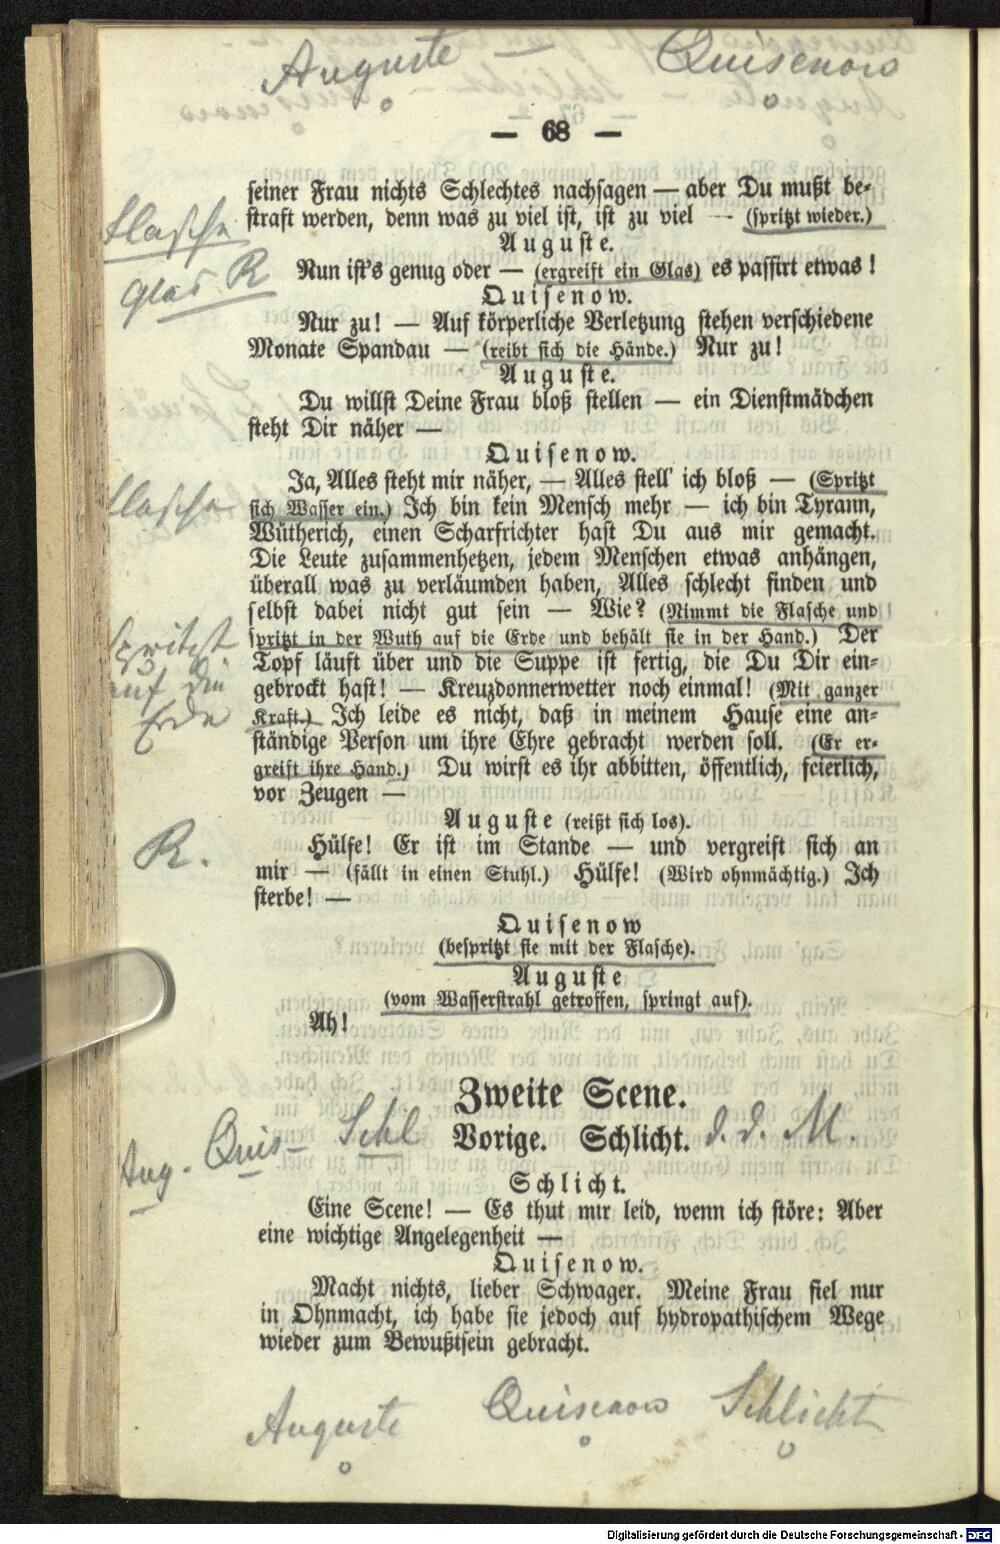 Auguste — Quisenow
— 68 —
seiner Frau nichts Schlechtes nachsagen — aber Du mußt be-
straft werden, denn was zu viel ist, ist zu viel — (spritzt wieder.)
Flasche
Auguste.
Nun ist's genug oder — (ergreift ein Glas) es passirt etwas!
Glas R
Quisenow.
Nur zu! — Auf körperliche Verletzung stehen verschiedene
Monate Spandau — (reibt sich die Hände.) Nur zu!
Auguste.
Du willst Deine Frau bloß stellen — ein Dienstmädchen
steht Dir näher —
Quisenow.
Ja, Alles steht mir näher, — Alles stell' ich bloß — (Spritzt
Flasche
sich Wasser ein.) Ich bin kein Mensch mehr — ich bin Tyrann,
Wütherich, einen Scharfrichter hast Du aus mir gemacht.
Die Leute zusammenhetzen, jedem Menschen etwas anhängen,
überall was zu verläumden haben, Alles schlecht finden und
selbst dabei nicht gut sein — Wie? (Nimmt die Flasche und
spritzt in der Wuth auf die Erde und behält sie in der Hand.) Der
spritzt
auf die
Erde
Topf läuft über und die Suppe ist fertig, die Du Dir ein-
gebrockt hast! — Kreuzdonnerwetter noch einmal! (Mit ganzer
Kraft.) Ich leide es nicht, daß in meinem Hause eine an-
ständige Person um ihre Ehre gebracht werden soll. (Er er-
greift ihre Hand.) Du wirst es ihr abbitten, öffentlich, feierlich,
vor Zeugen —
Auguste (reißt sich los).
R.
Hülfe! Er ist im Stande — und vergreift sich an
mir — (fällt in einen Stuhl.) Hülfe! (Wird ohnmächtig.) Ich
sterbe! —
Quisenow
(bespritzt sie mit der Flasche).
Auguste
(vom Wasserstrahl getroffen, springt auf).
Ah!
Zweite Scene.
Aug. Quis- Schl
Vorige. Schlicht. d. d. M.
Schlicht.
Eine Scene! — Es thut mir leid, wenn ich störe: Aber
eine wichtige Angelegenheit —
Quisenow.
Macht nichts, lieber Schwager. Meine Frau fiel nur
in Ohnmacht, ich habe sie jedoch auf hydropathischem Wege
wieder zum Bewußtsein gebracht.
Auguste Quisenow Schlicht
Digitalisierung gefördert durch die Deutsche Forschungsgemeinschaft - DFG